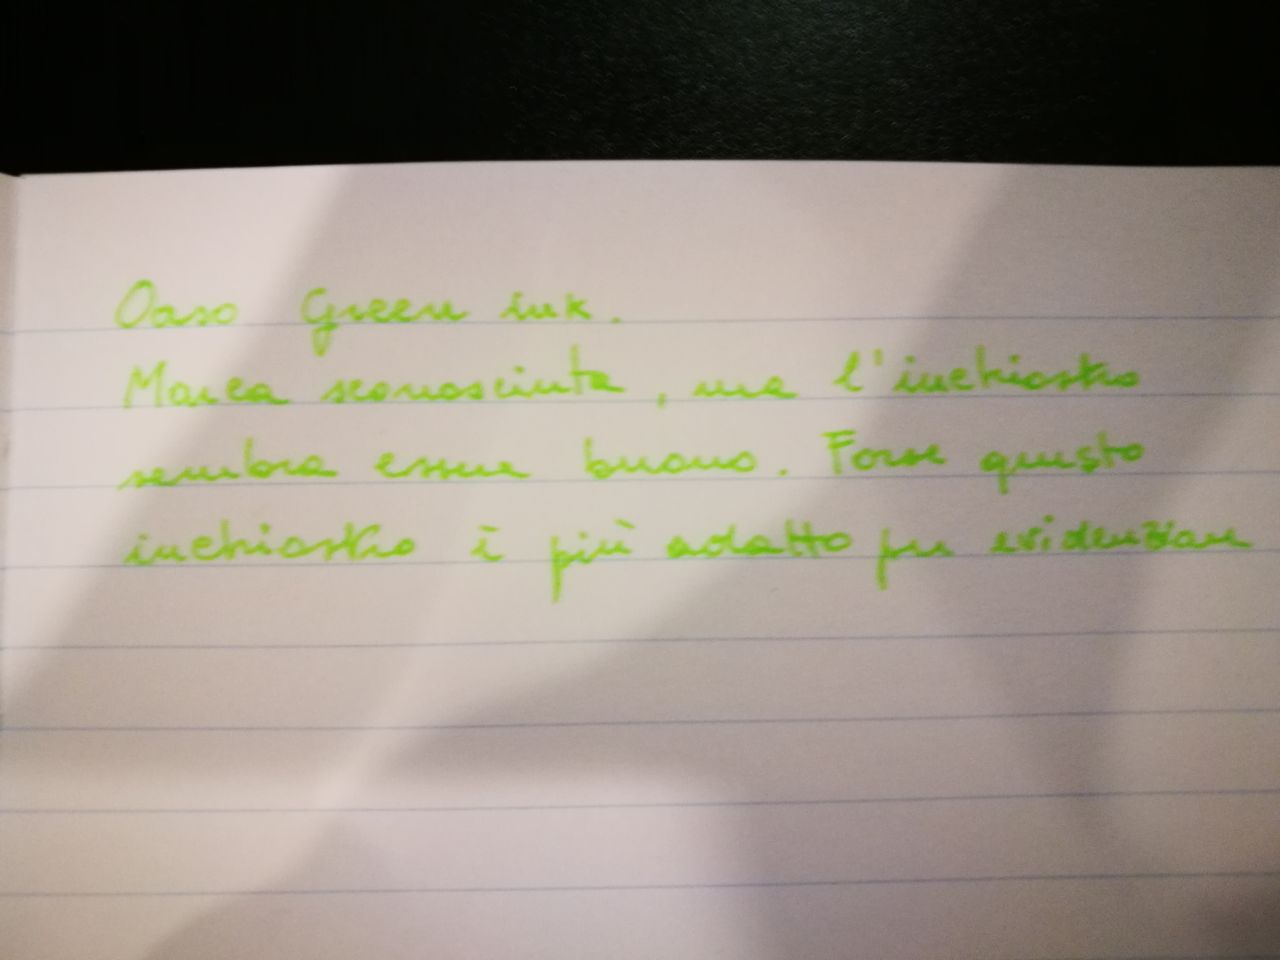 Oaso Green ink.
Marca sconosciuta, ma l'inchiostro
sembra essere buono. Forse questo
inchiostro è più adatto per evidenziare